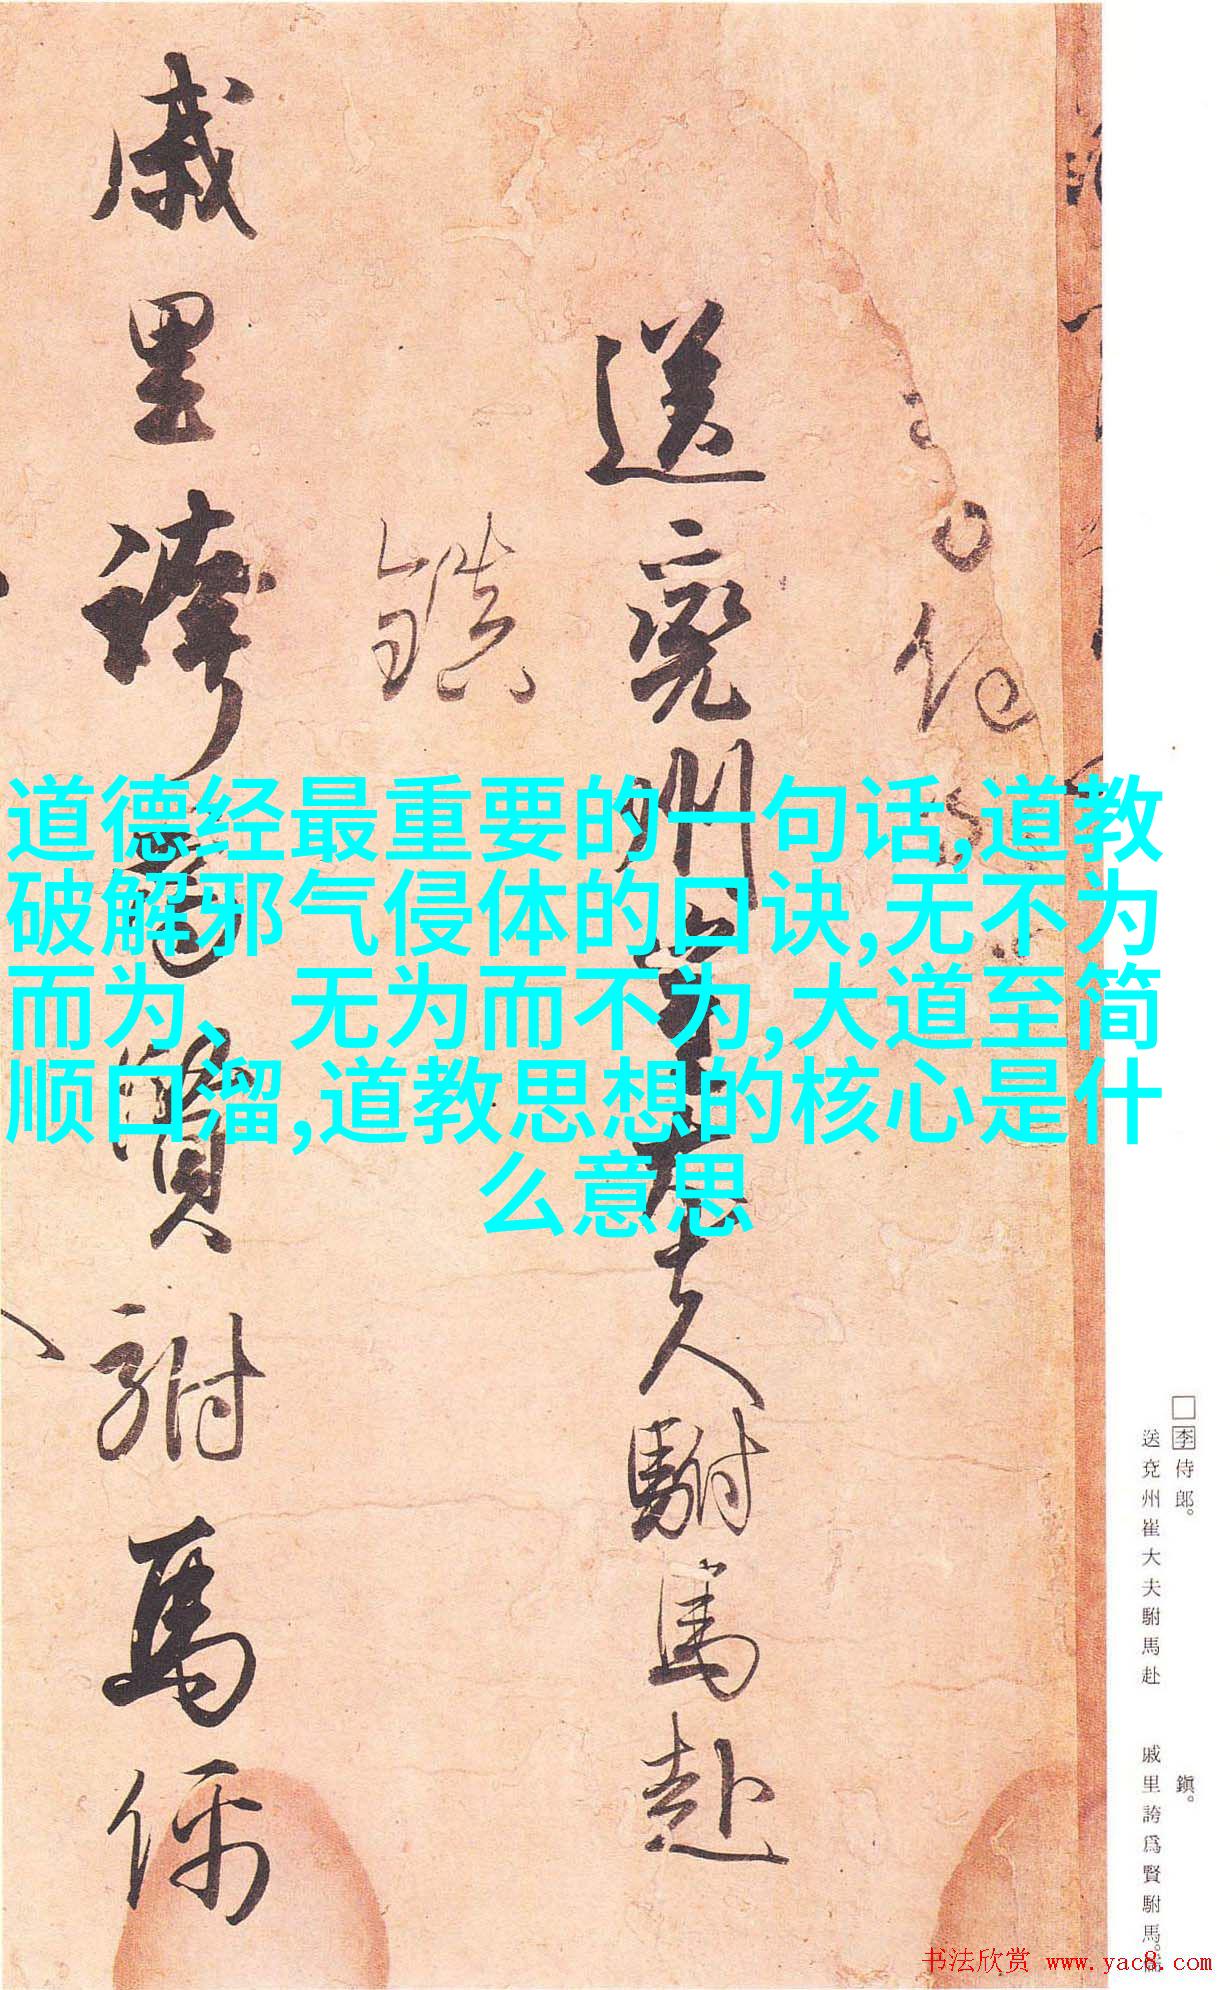 道德经最重要的一句话,道教
破解邪气侵体的口诀,无不为
而为、无为而不为,大道至简
顺口溜,道教思想的核心是什
么意思
送兗州崔大夫駙馬赴
鎮
戚里誇為賢駙馬儒
□李侍郎。
送兗州崔大夫駙馬赴
鎮。
戚里誇爲賢駙馬。儒
书法欣赏 www.yac8.com